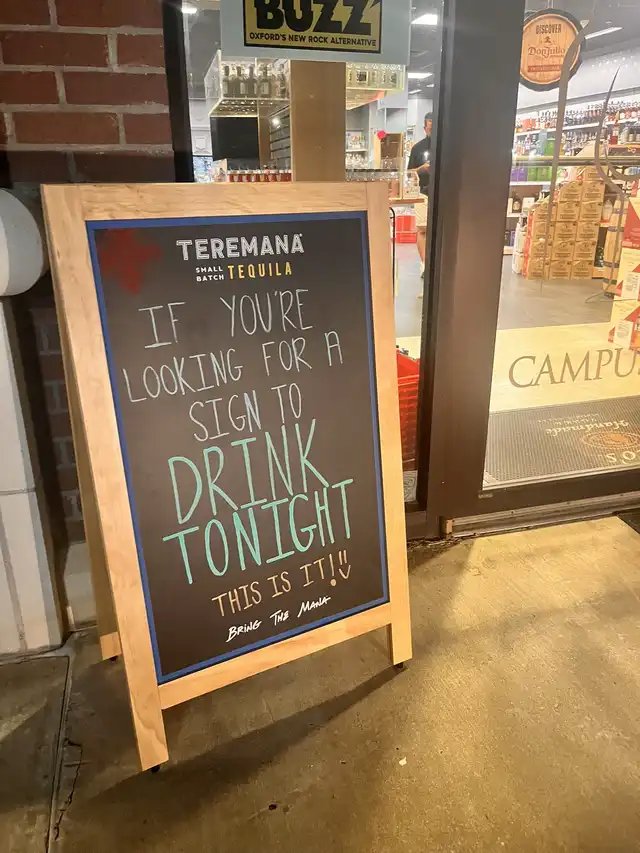 BUZZ
OXFORD'S NEW ROCK ALTERNATIVE
DISCOVER
Don Julio
TEREMANA
SMALL BATCH TEQUILA
IF YOU'RE
LOOKING FOR A
SIGN TO
DRINK
TONIGHT
THIS IS IT!!
BRING THE MANA
CAMPUS
Handmade